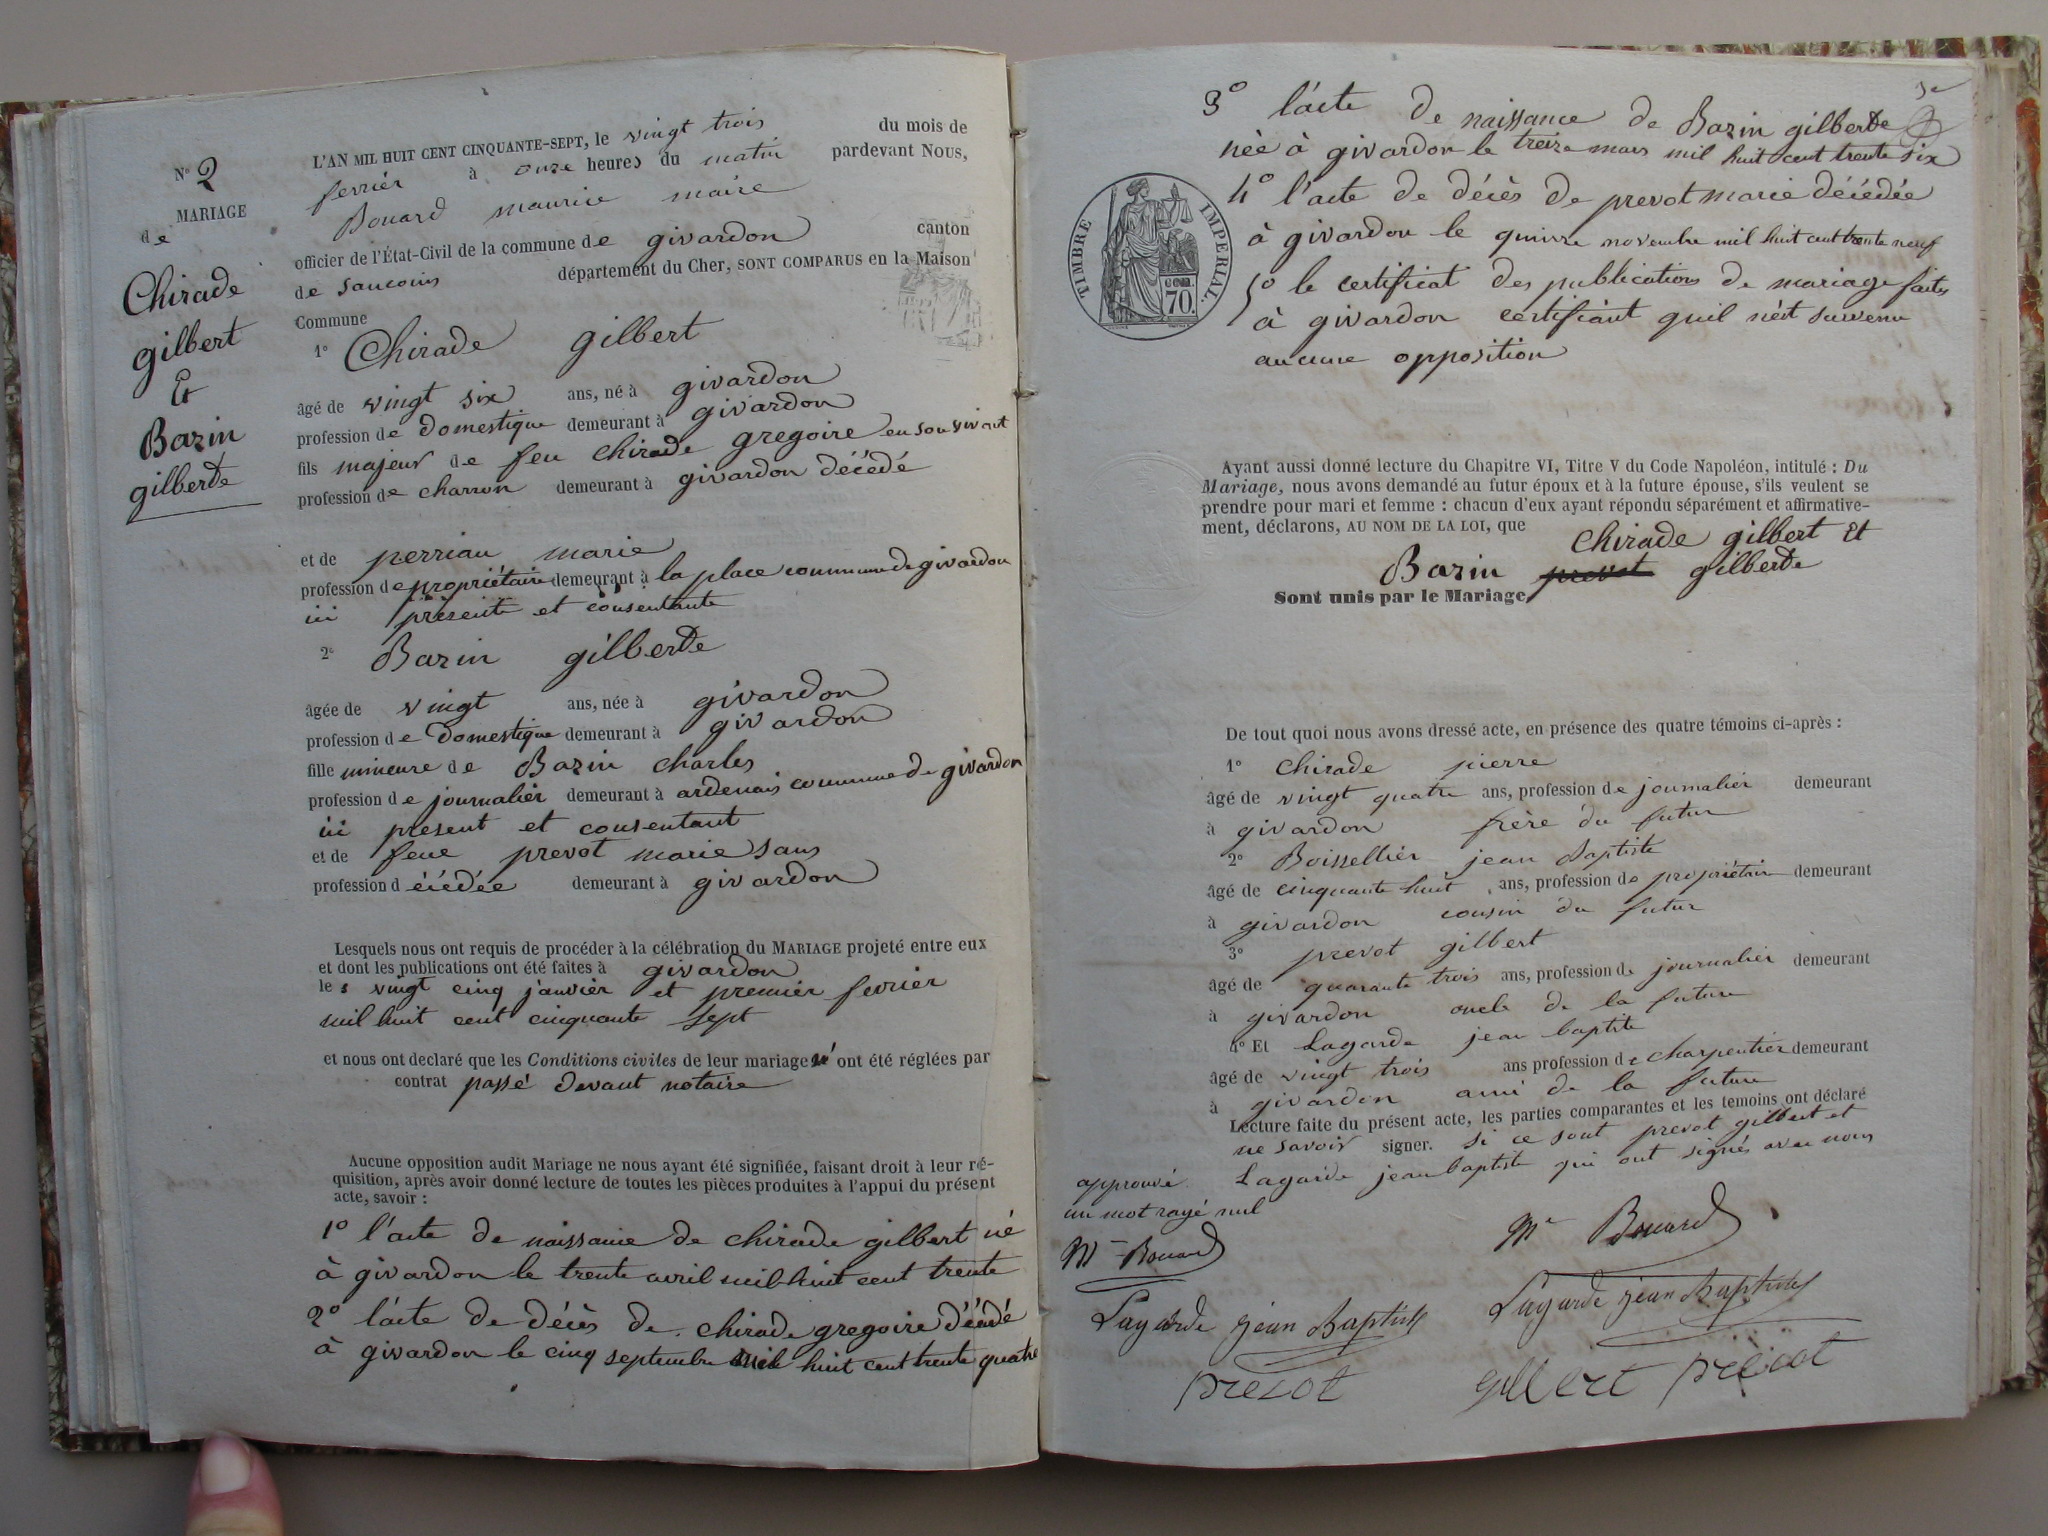 N° 2
MARIAGE
de
Chirade
gilbert
Et
Bazin
gilberte
L'AN MIL HUIT CENT CINQUANTE-SEPT, le vingt trois du mois de
ferrier à onze heures du matin pardevant NOUS,
Bouard maurice maire
officier de l'État-Civil de la commune de givardon canton
de Sancoins département du Cher, SONT COMPARUS en la Maison
Commune
1° Chirade gilbert
âgé de vingt six ans, né à givardon
profession de domestique demeurant à givardon
fils majeur de feu chirade gregoire en son vivant
profession de charron demeurant à givardon décédé
et de perriau marie
profession de propriétaire demeurant à la place commune de givardon
ici présente et consentante
2° Bazin gilberte
âgée de vingt ans, née à givardon
profession de domestique demeurant à givardon
fille mineure de Bazin charles
profession de journalier demeurant à ardenais commune de givardon
ici présent et consentant
et de feue prevot marie sans
profession décédée demeurant à givardon
Lesquels nous ont requis de procéder à la célébration du MARIAGE projeté entre eux
et dont les publications ont été faites à givardon
les vingt cinq janvier et premier fevrier
mil huit cent cinquante sept
et nous ont declaré que les Conditions civiles de leur mariage n' ont été réglées par
contrat passé devant notaire
Aucune opposition audit Mariage ne nous ayant été signifiée, faisant droit à leur ré-
quisition, après avoir donné lecture de toutes les pièces produites à l'appui du présent
acte, savoir :
1° l'acte de naissance de chirade gilbert né
à givardon le trente avril mil huit cent trente
2° l'acte de décès de chirade gregoire décédé
à givardon le cinq septembre mil huit cent trente quatre
3° l'acte de naissance de Bazin gilberte
née à givardon le treize mars mil huit cent trente six
4° l'acte de décès de prevot marie décédée
à givardon le quinze novembre mil huit cent trente neuf
5° le certificat des publications de mariage faites
à givardon certifiant quil n'est survenu
aucune opposition
TIMBRE IMPERIAL.
70.
Ayant aussi donné lecture du Chapitre VI, Titre V du Code Napoléon, intitulé : Du
Mariage, nous avons demandé au futur époux et à la future épouse, s'ils veulent se
prendre pour mari et femme : chacun d'eux ayant répondu séparément et affirmative-
ment, déclarons, AU NOM DE LA LOI, que chirade gilbert et
Bazin prevot gilberte
Sont unis par le Mariage
De tout quoi nous avons dressé acte, en présence des quatre témoins ci-après :
1° chirade pierre
âgé de vingt quatre ans, profession de journalier demeurant
à givardon frère du futur
2° Boissellier jean Baptiste
âgé de cinquante huit ans, profession de propriétaire demeurant
à givardon cousin du futur
3° prevot gilbert
âgé de quarante trois ans, profession de journalier demeurant
à givardon oncle de la future
4° Et Lagarde jean baptiste
âgé de vingt trois ans profession de charpentier demeurant
à givardon ami de la future
Lecture faite du présent acte, les parties comparantes et les temoins ont déclaré
ne savoir signer. si ce sont prevot gilbert et
Lagarde jean baptiste qui ont signés avec nous
approuvé
un mot rayé nul
Mce Bouard
Mce Bouard
Lagarde jean Baptiste
Lagarde jean Baptiste
prevot
gilbert prevot